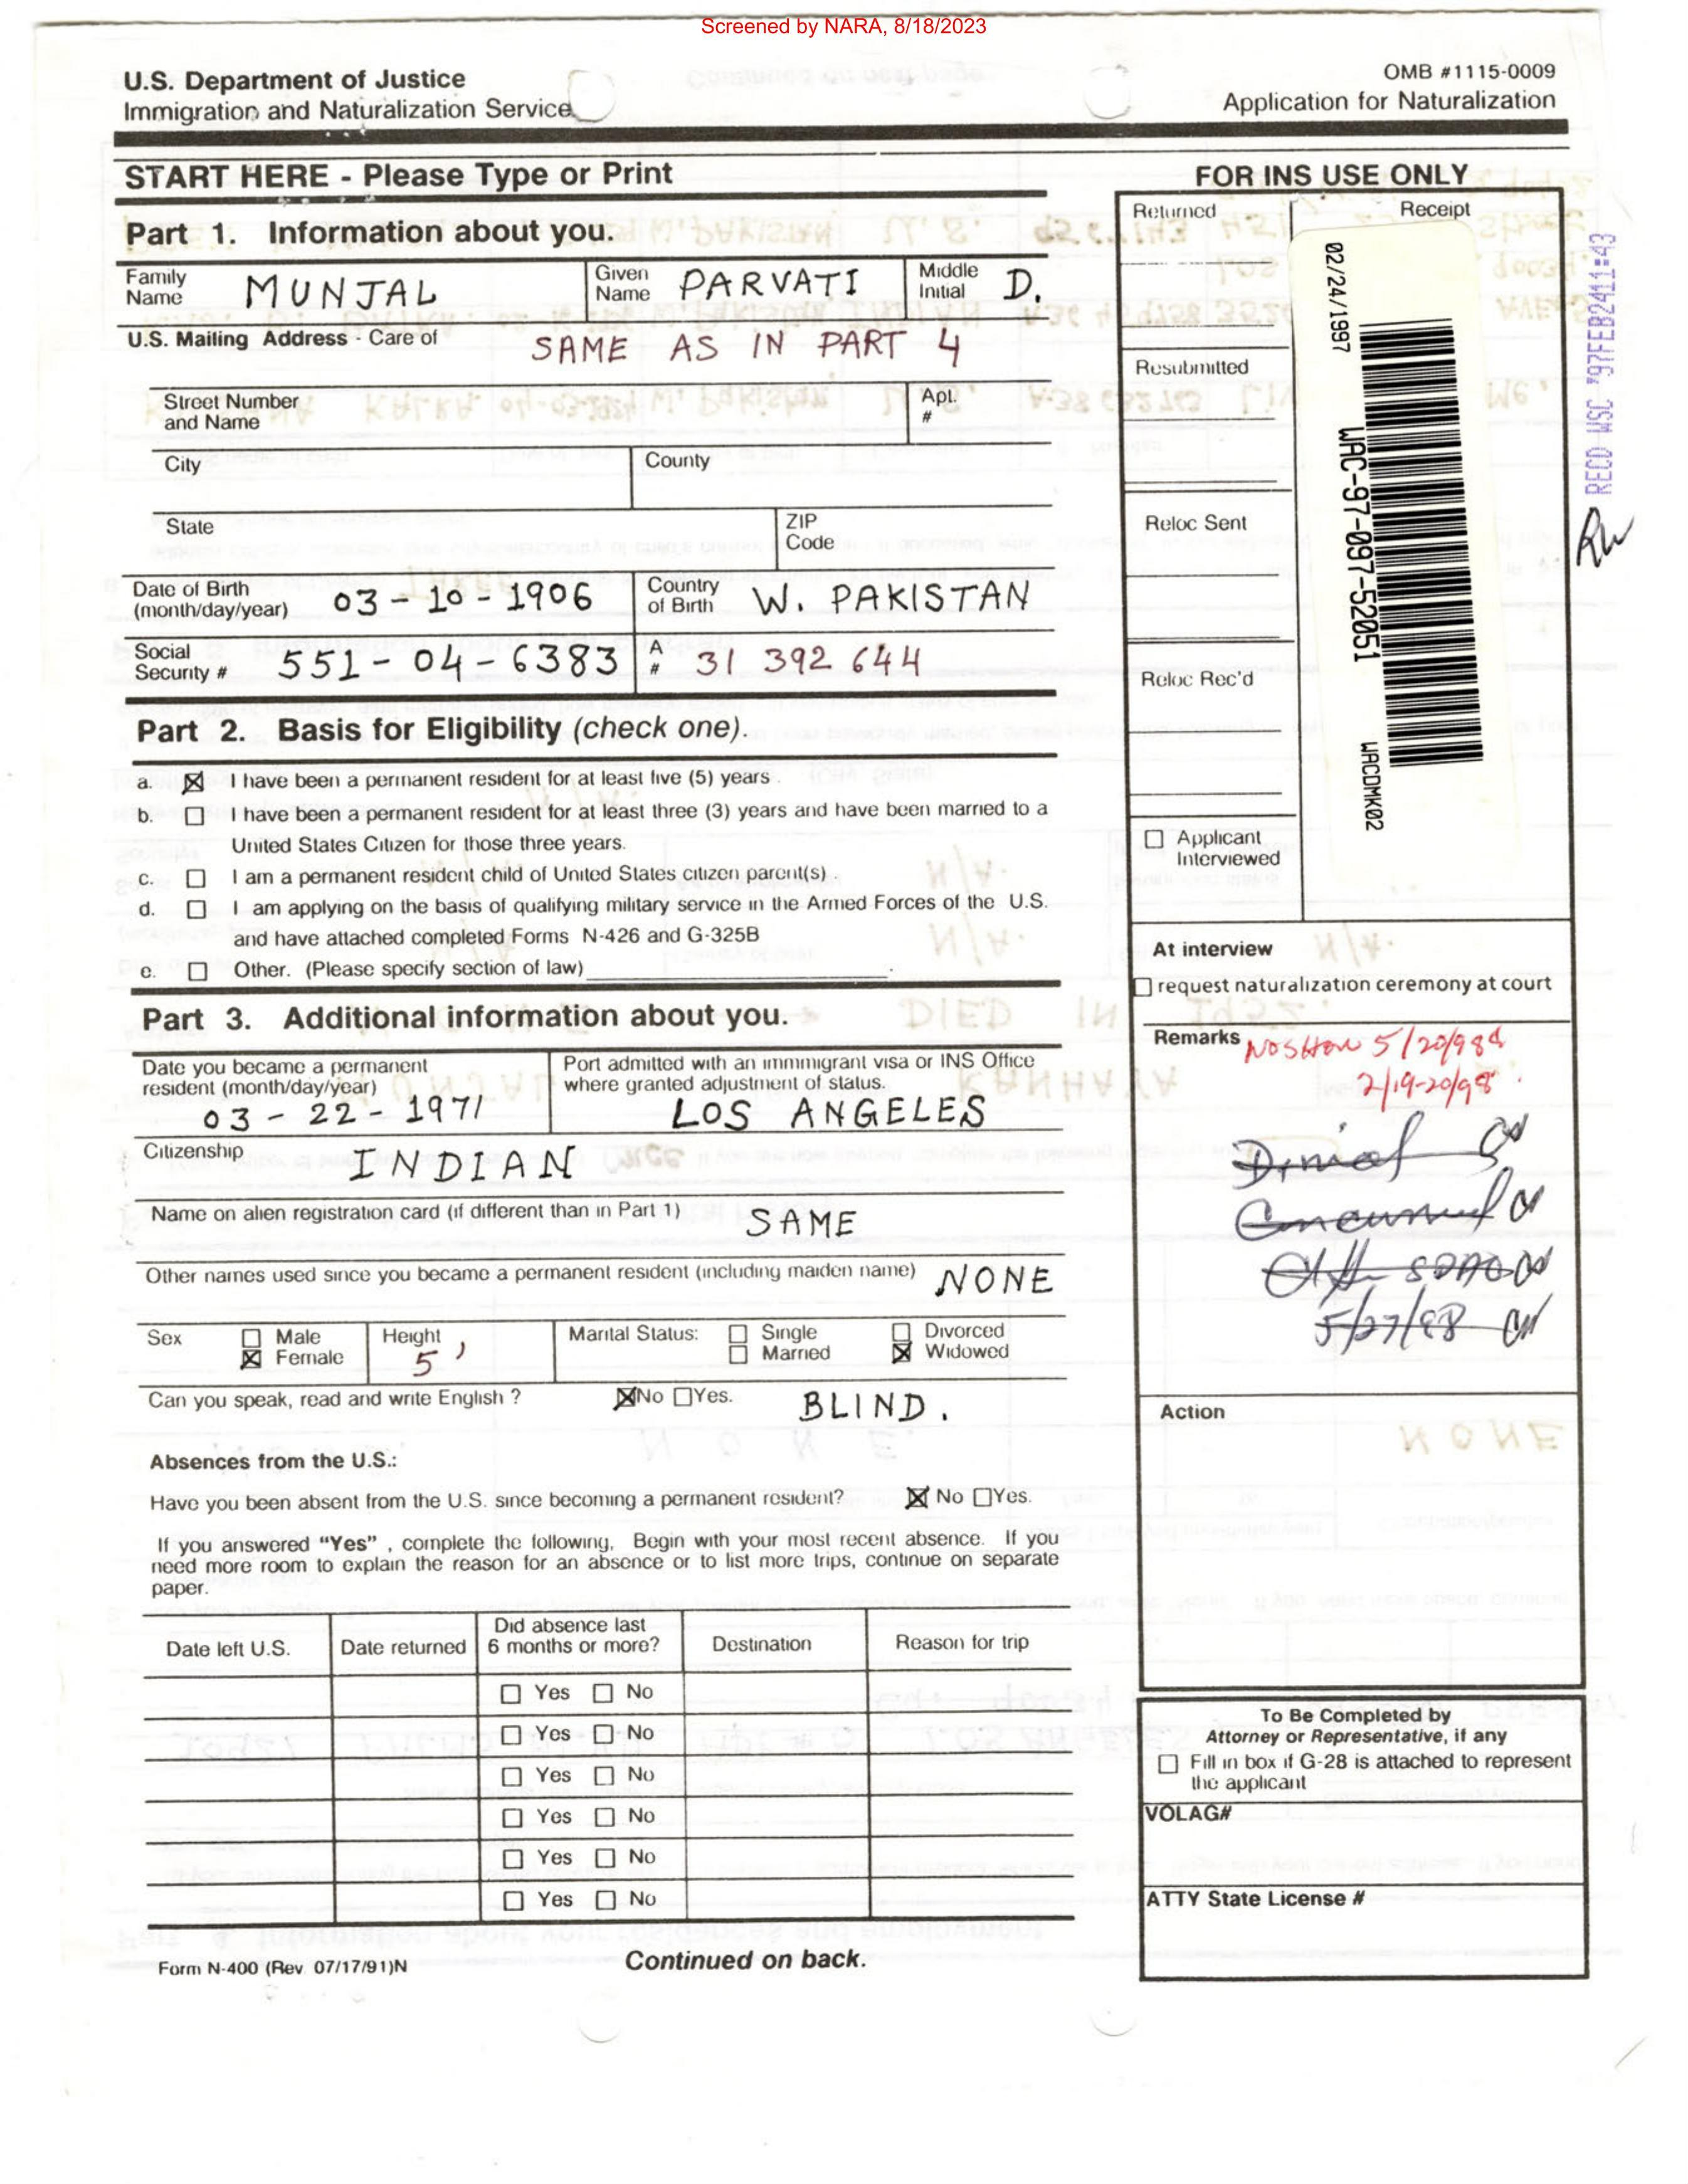 Screened by NARA, 8/18/2023
U.S. Department of Justice
Immigration and Naturalization Service
OMB #1115-0009
Application for Naturalization
START HERE - Please Type or Print
Part 1. Information about you.
Family Name MUNJAL
Given Name PARVATI
Middle Initial D.
U.S. Mailing Address - Care of SAME AS IN PART 4
Street Number and Name
Apt. #
City
County
State
ZIP Code
Date of Birth (month/day/year) 03-10-1906
Country of Birth W. PAKISTAN
Social Security # 551-04-6383
A # 31 392 644
Part 2. Basis for Eligibility (check one).
a. ☒ I have been a permanent resident for at least five (5) years .
b. ☐ I have been a permanent resident for at least three (3) years and have been married to a
United States Citizen for those three years.
c. ☐ I am a permanent resident child of United States citizen parent(s) .
d. ☐ I am applying on the basis of qualifying military service in the Armed Forces of the U.S.
and have attached completed Forms N-426 and G-325B
e. ☐ Other. (Please specify section of law)
Part 3. Additional information about you.
Date you became a permanent resident (month/day/year) 03-22-1971
Port admitted with an immigrant visa or INS Office where granted adjustment of status. LOS ANGELES
Citizenship INDIAN
Name on alien registration card (if different than in Part 1) SAME
Other names used since you became a permanent resident (including maiden name) NONE
Sex ☐ Male ☒ Female
Height 5'
Marital Status: ☐ Single ☐ Married ☐ Divorced ☒ Widowed
Can you speak, read and write English ? ☒No ☐Yes. BLIND.
Absences from the U.S.:
Have you been absent from the U.S. since becoming a permanent resident? ☒ No ☐Yes.
If you answered "Yes" , complete the following, Begin with your most recent absence. If you
need more room to explain the reason for an absence or to list more trips, continue on separate
paper.
Date left U.S.
Date returned
Did absence last 6 months or more?
Destination
Reason for trip
☐ Yes ☐ No
☐ Yes ☐ No
☐ Yes ☐ No
☐ Yes ☐ No
☐ Yes ☐ No
☐ Yes ☐ No
Form N-400 (Rev. 07/17/91)N
Continued on back.
FOR INS USE ONLY
Returned
Receipt
02/24/1997
WAC-97-097-52051
WACDMK02
RECD WSC '97FEB2411:43
Resubmitted
Reloc Sent
Reloc Rec'd
☐ Applicant Interviewed
At interview
☐ request naturalization ceremony at court
Remarks
NOSHOW 5/20/98
2/19-20/98
Denial
5/27/98
Action
To Be Completed by
Attorney or Representative, if any
☐ Fill in box if G-28 is attached to represent
the applicant
VOLAG#
ATTY State License #